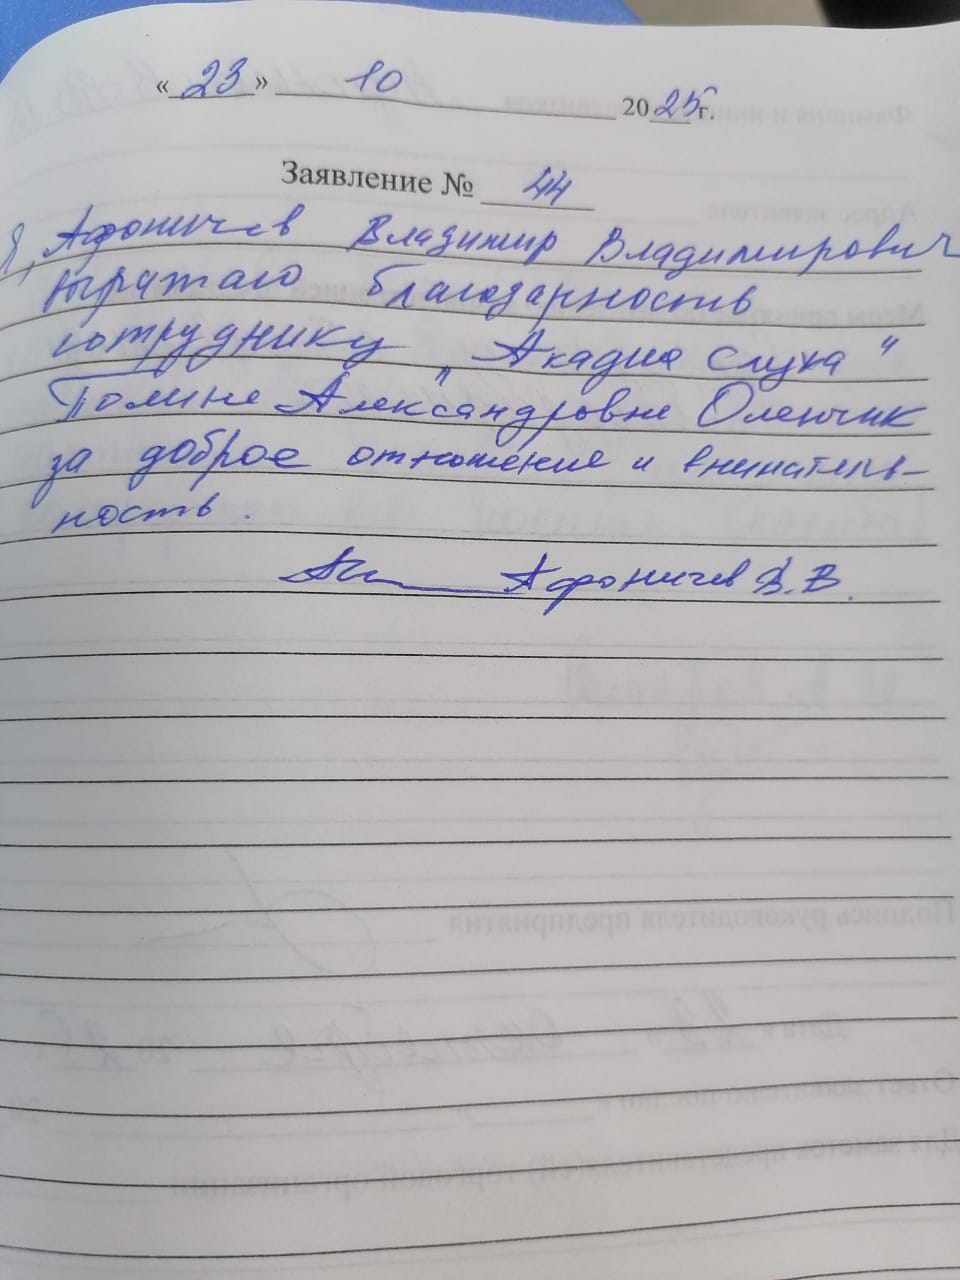 « 23 » 10 2025 г.
Заявление № 44
Я, Афоничев Владимир Владимирович
выражаю благодарность
сотруднику "Академия Слуха"
Полине Александровне Оленчик
за доброе отношение и вниматель-
ность.
Афоничев В.В.